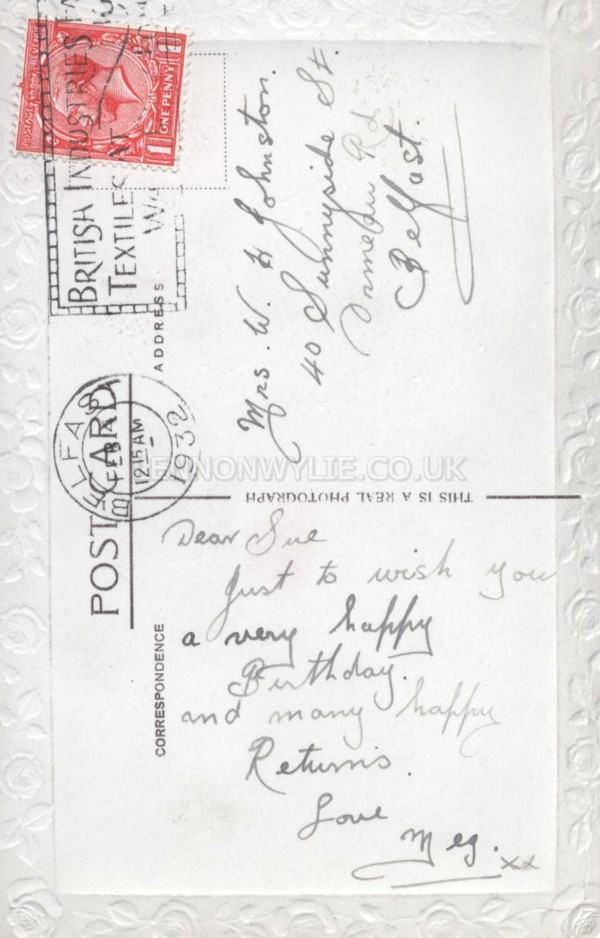 POSTAGE REVENUE
ONE PENNY
BRITISH INDUSTRIES FA
TEXTILES
BELFAST
FEB
12.15AM
1932
POST CARD
ADDRESS
Mrs. W. H Johnston.
40 Sunnyside St.
Ormeau Rd
Belfast.
LENNONWYLIE.CO.UK
THIS IS A REAL PHOTOGRAPH
CORRESPONDENCE
Dear Sue
Just to wish you
a very happy
Birthday.
and many happy
Returns.
Love
Meg. xx